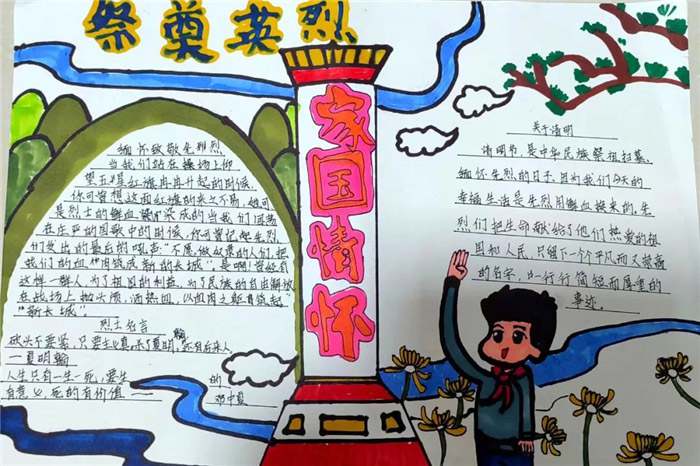 祭奠英烈
家国情怀
缅怀致敬先烈
当我们站在操场上仰
望五星红旗冉冉升起的时候,
你可曾想这面红旗的来之不易,她可
是烈士的鲜血染成的当我们回荡
在庄严的国歌中的时候,你可曾记起先烈
们发出的最后的吼声"不愿做奴隶的人们,把
我们的血肉筑成新的长城",是啊!曾经有
这样一群人,为了祖国的利益,为了民族的自由解放
在战场上抛头颅,洒热血,以血肉之躯筑起
"新长城"
烈士名言
砍头不要紧,只要主义真,杀了夏明翰,还有后来人
—夏明翰
人生只有一生一死,要生
有意义,死的有价值——
邓中夏
关于清明
清明节,是中华民族祭祖扫墓,
缅怀先烈的日子,因为我们今天的
幸福生活是先烈用鲜血换来的,先
烈们把生命献给了他们热爱的祖
国和人民,只留下一个个平凡而又
的名字,和一行行简短而厚重的
事迹.